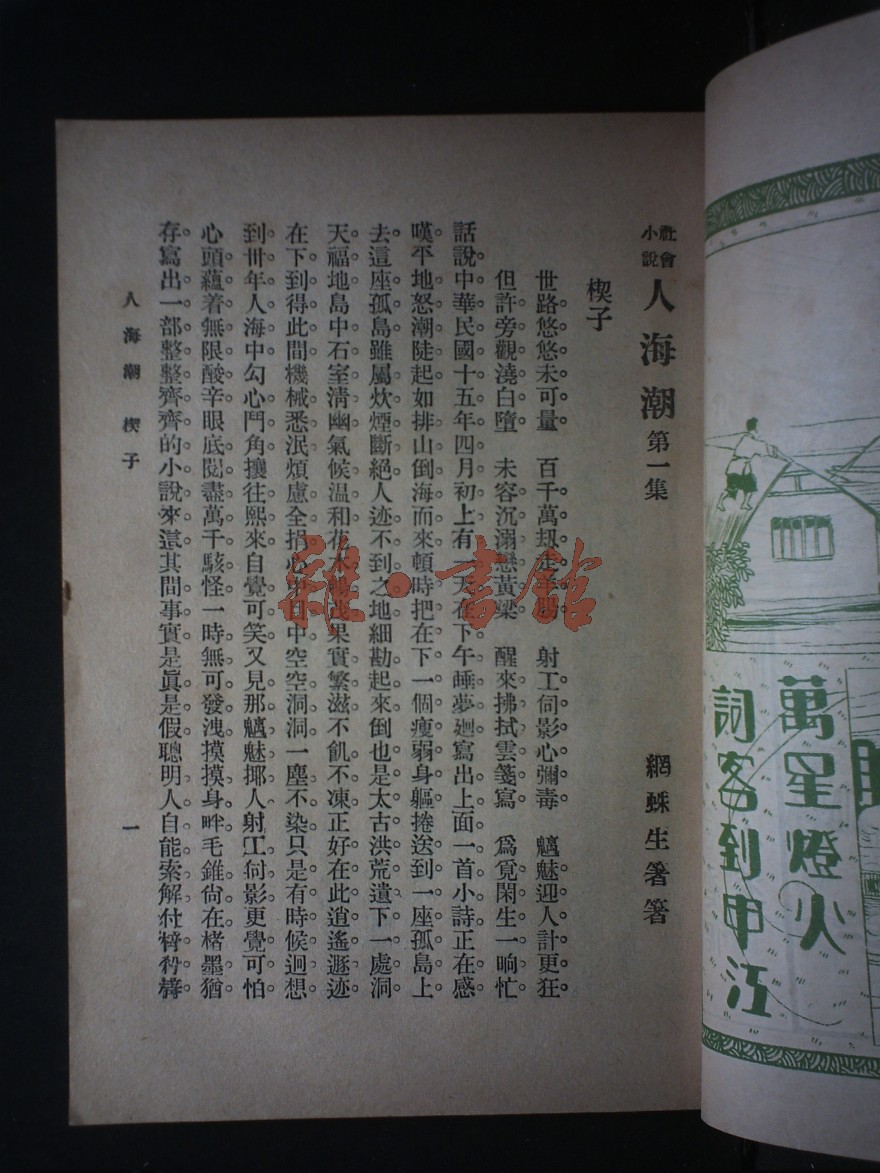 萬星燈火
詞客到申江
社會小說 人海潮 第一集 網蛛生箸
楔子
世路悠悠未可量 百千萬刼走羊腸 射工伺影心彌毒 魑魅迎人計更狂
但許旁觀澆白墮 未容沉溺戀黃粱 醒來拂拭雲箋寫 爲覓閑生一晌忙
話說中華民國十五年四月初上有一天在下午睡夢廻寫出上面一首小詩正在感
嘆平地怒潮陡起如排山倒海而來頓時把在下一個瘦弱身軀捲送到一座孤島上
去這座孤島雖屬炊煙斷絕人迹不到之地細勘起來倒也是太古洪荒遺下一處洞
天福地島中石室清幽氣候温和花木暢茂果實繁滋不飢不凍正好在此逍遙遯迹
在下到得此間機械悉泯煩慮全捐心中目中空空洞洞一塵不染只是有時候迴想
到卅年人海中勾心鬥角攘往熙來自覺可笑又見那魑魅揶人射工伺影更覺可怕
心頭蘊着無限酸辛眼底閱盡萬千駭怪一時無可發洩摸摸身畔毛錐尙在楮墨猶
存寫出一部整整齊齊的小說來這其間事實是眞是假聰明人自能索解
人海潮 楔子 一
雜·書館